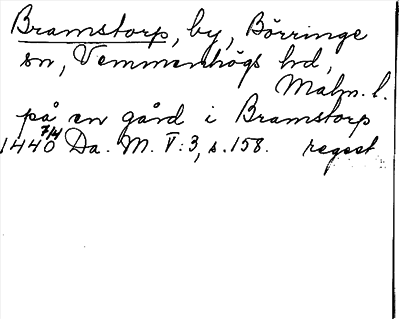 Bramstorp, by, Börringe
sn, Vemmenhögs hd,
Malm. l.
på en gård i Bramstorp
1440 7/4 Da. M. V:3, s. 158. regest